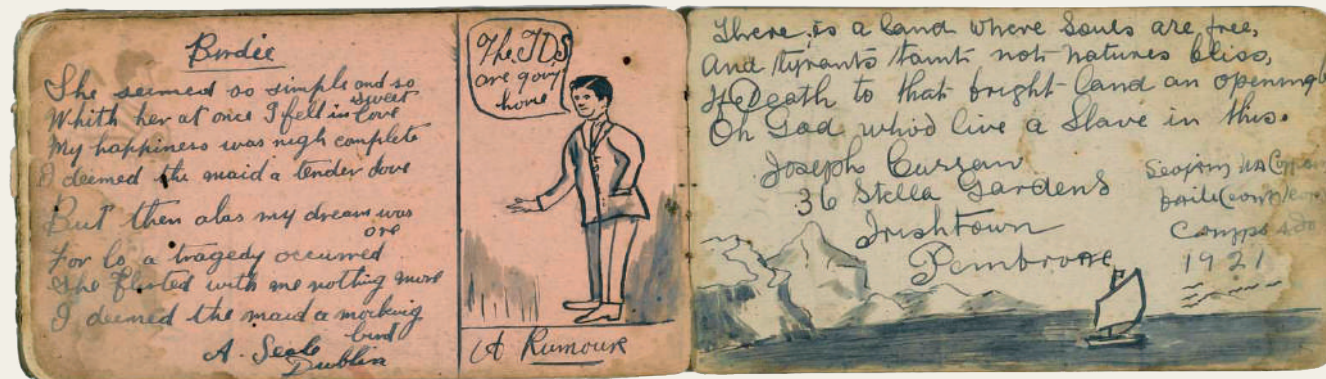 Birdie
She seemed so simple and so
sweet
Whith her at once I fell in love
My happiness was nigh complete
I deemed the maid a tender dove
But then alas my dream was
ore
For lo a tragedy occurred
She flirted with me nothing more
I deemed the maid a mocking
bird
A. Seale
Dublin
The T.D.S
are going
home
A Rumour
There is a land where Souls are free,
And tyrants taint not natures bliss,
If Death to that bright land an opening
Oh God who'd live a Slave in this.
Joseph Curran
36 Stella Gardens
Irishtown
Pembroke
1921